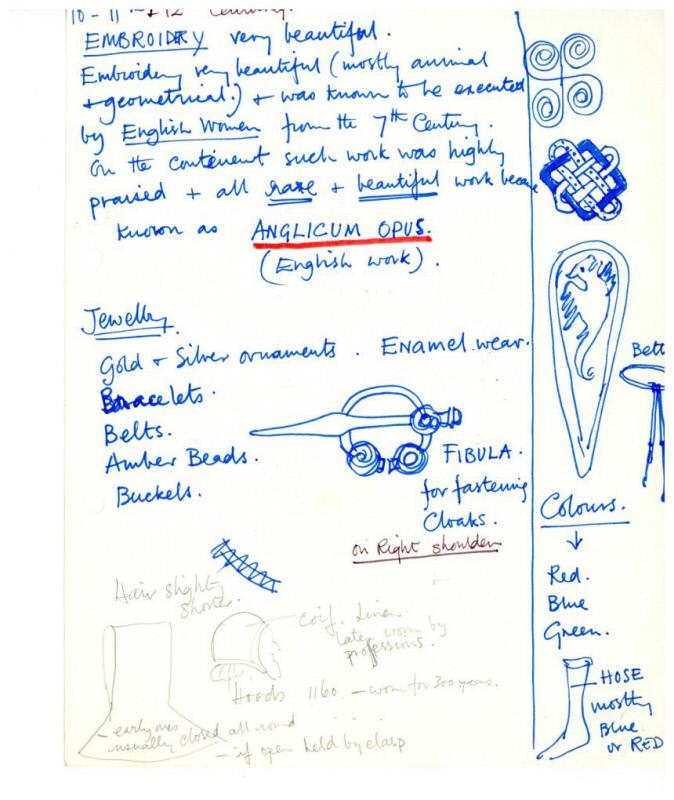 10 - 11 - 12 Century.
EMBROIDERY very beautiful.
Embroidery very beautiful (mostly animal
+ geometrical.) + was known to be executed
by English Women from the 7th Century.
On the continent such work was highly
praised + all rare + beautiful work became
known as ANGLICUM OPUS.
(English work).
Jewellry.
Gold + Silver ornaments. ENamel wear.
Baracelets.
Belts.
Amber Beads.
Buckels.
FIBULA.
for fastening
Cloaks.
on Right shoulder
Belt
Colours.
Red.
Blue
Green.
HOSE
mostly
Blue
or RED
Hair slightly
shorter.
coif. Linen
later worn by
professions.
Hoods 1160 - worn for 300 years.
- early ones
usually closed all round
- if open held by clasp